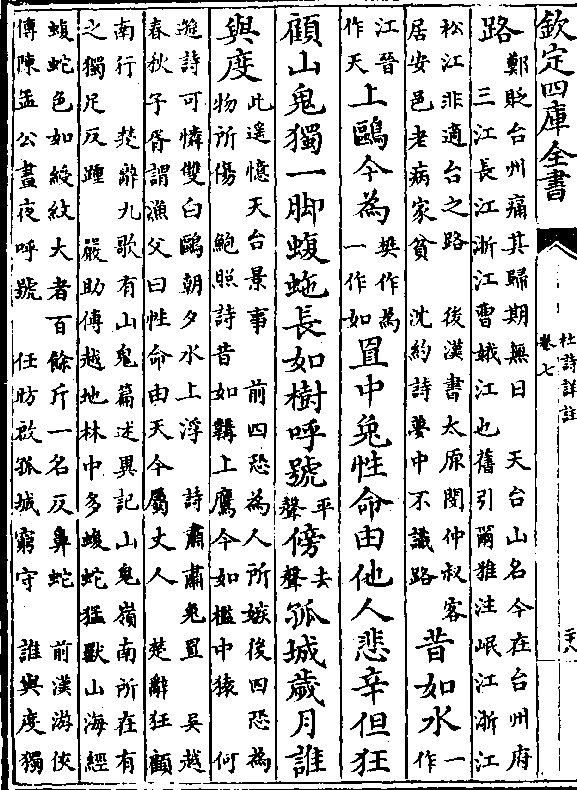 欽定四庫全書
杜詩詳註
卷七
路
鄭貶台州痛其歸期無日 天台山名今在台州府
三江長江浙江曹娥江也舊引爾雅注岷江浙江
松江非適台之路 後漢書太原閔仲叔客
居安邑老病家貧 沈約詩夢中不識路
昔如水一作
江晉作天上鷗今為樊作為一作如罝中兔性命由他人悲辛但狂
顧山鬼獨一脚蝮蛇長如樹呼號平聲傍去聲孤城歲月誰
與度
此遥憶天台景事 前四恐為人所嫉後四恐為
物所傷 鮑照詩昔如韝上鷹今如檻中猿 何
遜詩可憐雙白鷗朝夕水上浮 詩肅肅兔罝 吳越
春秋子胥謂漁父曰性命由天今屬丈人 楚辭狂顧
南行 楚辭九歌有山鬼篇述異記山鬼嶺南所在有
之獨足反踵 嚴助傳越地林中多蝮蛇猛獸山海經
蝮蛇色如綬紋大者百餘斤一名反鼻蛇 前漢游俠
傳陳孟公晝夜呼號 任昉啟孤城窮守 誰與度獨